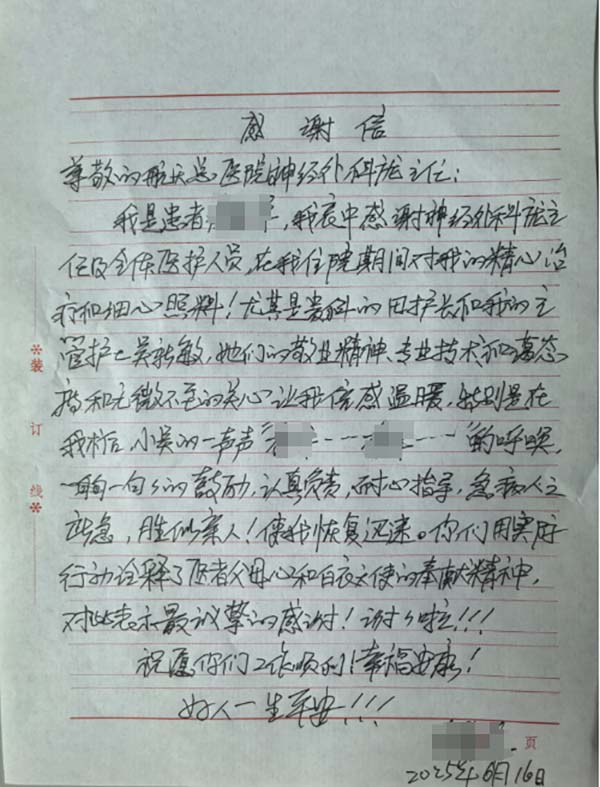 感谢信
尊敬的航天总医院神经外科庞主任：
我是患者，我衷中感谢神经外科庞主
任及全体医护人员，在我住院期间对我的精心治
疗和细心照料！尤其是贵科的田护长和我的主
管护士吴新敏，她们的敬业精神、专业技术和
和无微不至的关心让我倍感温暖，特别是在
我术后，小吴的一声声“------”的呼唤，
一句一句的鼓励，认真负责，耐心指导，急病人之
所急，胜似亲人！使我恢复迅速。你们用实际
行动诠释了医者父母心和白衣天使的奉献精神，
对此表示最诚挚的感谢！谢谢啦！！！
祝愿你们工作顺利！幸福安康！
好人一生平安！！！
页
2025年6月16日
装
订
线